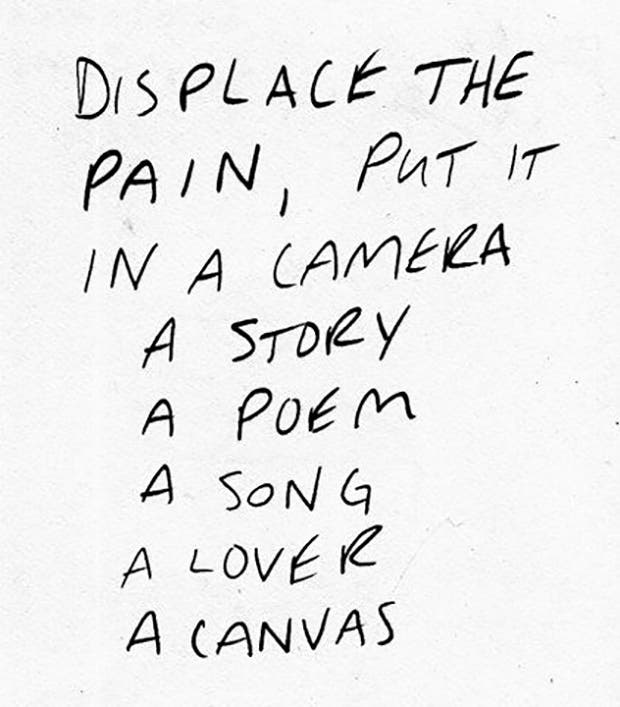 DISPLACE THE
PAIN, PUT IT
IN A CAMERA
A STORY
A POEM
A SONG
A LOVER
A CANVAS